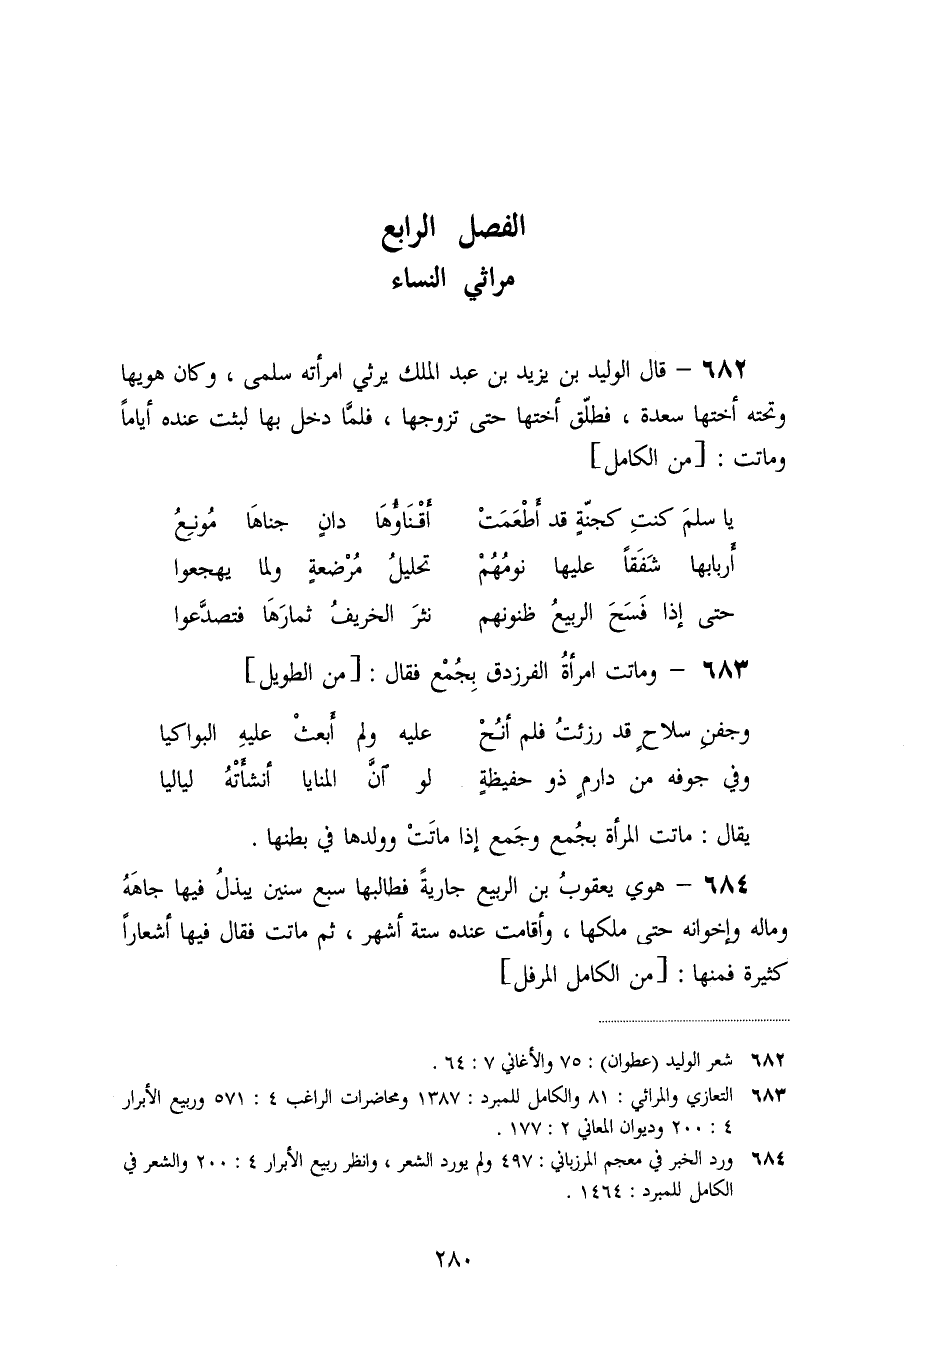 الفصل الرابع
مراثي النساء
٦٨٢ – قال الوليد بن يزيد بن عبد الملك يرثي امرأته سلمى ، وكان هويها
وتحته أختها سعدة ، فطلّق أختها حتى تزوجها ، فلمَّا دخل بها لبثت عنده أياماً
وماتت : [من الكامل]
يا سلمَ كنتِ كجنّةٍ قد أَطْعَمَتْ أَقْنَاؤُهَا دانٍ جناهَا مُونعُ
أَربابها شَفَقاً عليها نومُهُمْ تحليلُ مُرْضعةٍ ولما يهجعوا
حتى إذا فَسَحَ الربيعُ ظنونهم نثرَ الخريفُ ثمارَهَا فتصدَّعوا
٦٨٣ – وماتت امرأةُ الفرزدق بِجُمْع فقال : [من الطويل]
وجفنِ سلاحٍ قد رزئتُ فلم أنُحْ عليه ولم أَبعثْ عليهِ البواكيا
وفي جوفه من دارمٍ ذو حفيظةٍ لو آنَّ المنايا أنشأَتْهُ لياليا
يقال : ماتت المرأة بجُمع وجَمع إذا ماتَتْ وولدها في بطنها .
٦٨٤ – هوي يعقوبُ بن الربيع جاريةً فطالبها سبع سنين يبذلُ فيها جاهَهُ
وماله وإخوانه حتى ملكها ، وأقامت عنده ستة أشهر ، ثم ماتت فقال فيها أشعاراً
كثيرة فمنها : [من الكامل المرفل]
٦٨٢ شعر الوليد (عطوان) : ٧٥ والأغاني ٧ : ٦٤ .
٦٨٣ التعازي والمراثي : ٨١ والكامل للمبرد : ١٣٨٧ ومحاضرات الراغب ٤ : ٥٧١ وربيع الأبرار
٤ : ٢٠٠ وديوان المعاني ٢ : ١٧٧ .
٦٨٤ ورد الخبر في معجم المرزباني : ٤٩٧ ولم يورد الشعر ، وانظر ربيع الأبرار ٤ : ٢٠٠ والشعر في
الكامل للمبرد : ١٤٦٤ .
٢٨٠